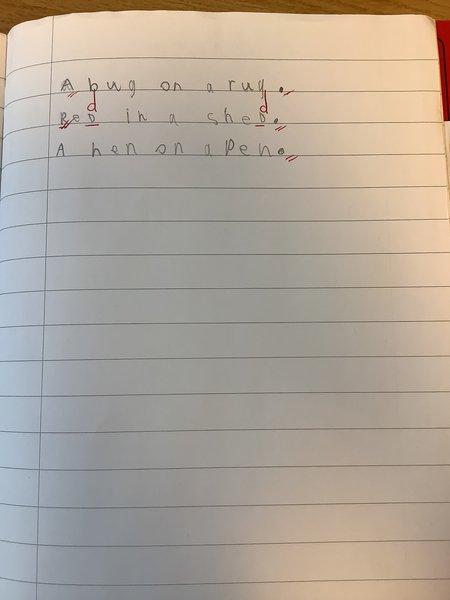 A bug on a rug.
d d
Reb in a sheb.
A hen on a pen.